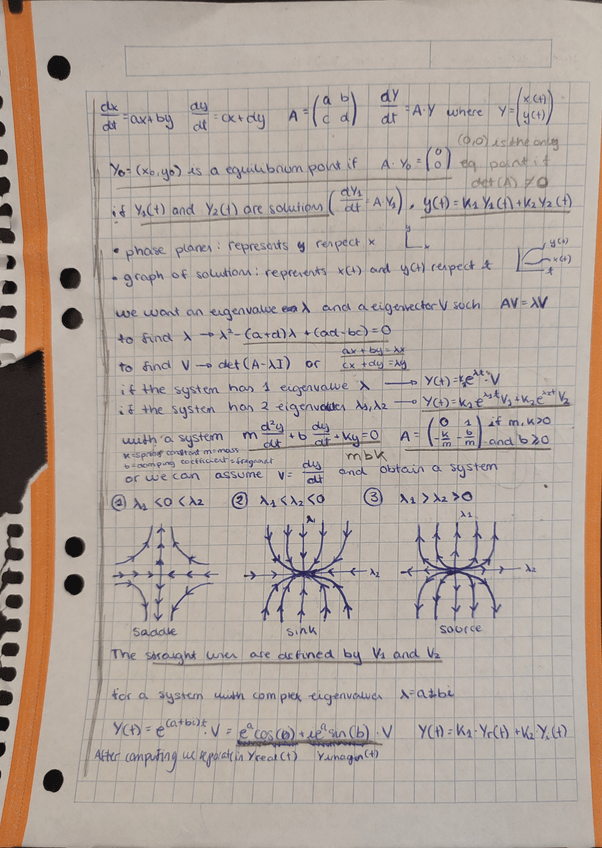 dx/dt = ax+by dy/dt = cx+dy A = (a b c d) dY/dt = A·Y where Y = (x(t) y(t))
Y₀ = (x₀,y₀) is a equilibrium point if A·Y₀ = (0 0) (0,0) is the only eq point if det(A) ≠ 0
if Y₁(t) and Y₂(t) are solution (dY₁/dt = A Y₁), y(t) = K₁Y₁(t)+K₂Y₂(t)
• phase planes: represents y respect x
x
• graph of solution: reprents x(t) and y(t) respect t
y(t)
x(t)
t
we want an eigenvalue λ and a eigenvector V such AV = λV
to find λ → λ²-(a+d)λ+(ad-bc)=0
to find V → det(A-λI) or ax+by=λx cx+dy=λy
if the system has 1 eigenvalue λ → Y(t) = k e^λt · V
if the system has 2 eigenvalues λ₁,λ₂ → Y(t) = K₁e^λ₁t V₁+K₂e^λ₂t V₂
with a system m d²y/dt + b dy/dt + ky = 0 A = (0 1 -k/m -b/m) if m,k>0 and b≥0
k=spring constant m=mass
b=damping coefficient
mbk
or we can assume V = dy/dt and obtain a system
① λ₁<0<λ₂ ② λ₁<λ₂<0 ③ λ₁>λ₂>0
λ₁
λ₂ λ₂
saddle sink source
The straight lines are defined by V₁ and V₂
for a system with complex eigenvalues λ=a±bi
Y(t) = e^(a+bi)t · V = e^a cos(b) + ie^a sin(b) · V Y(t) = K₁·Yr(t)+K₂·Yi(t)
After computing we separate in Yreal(t) Yimagin(t)